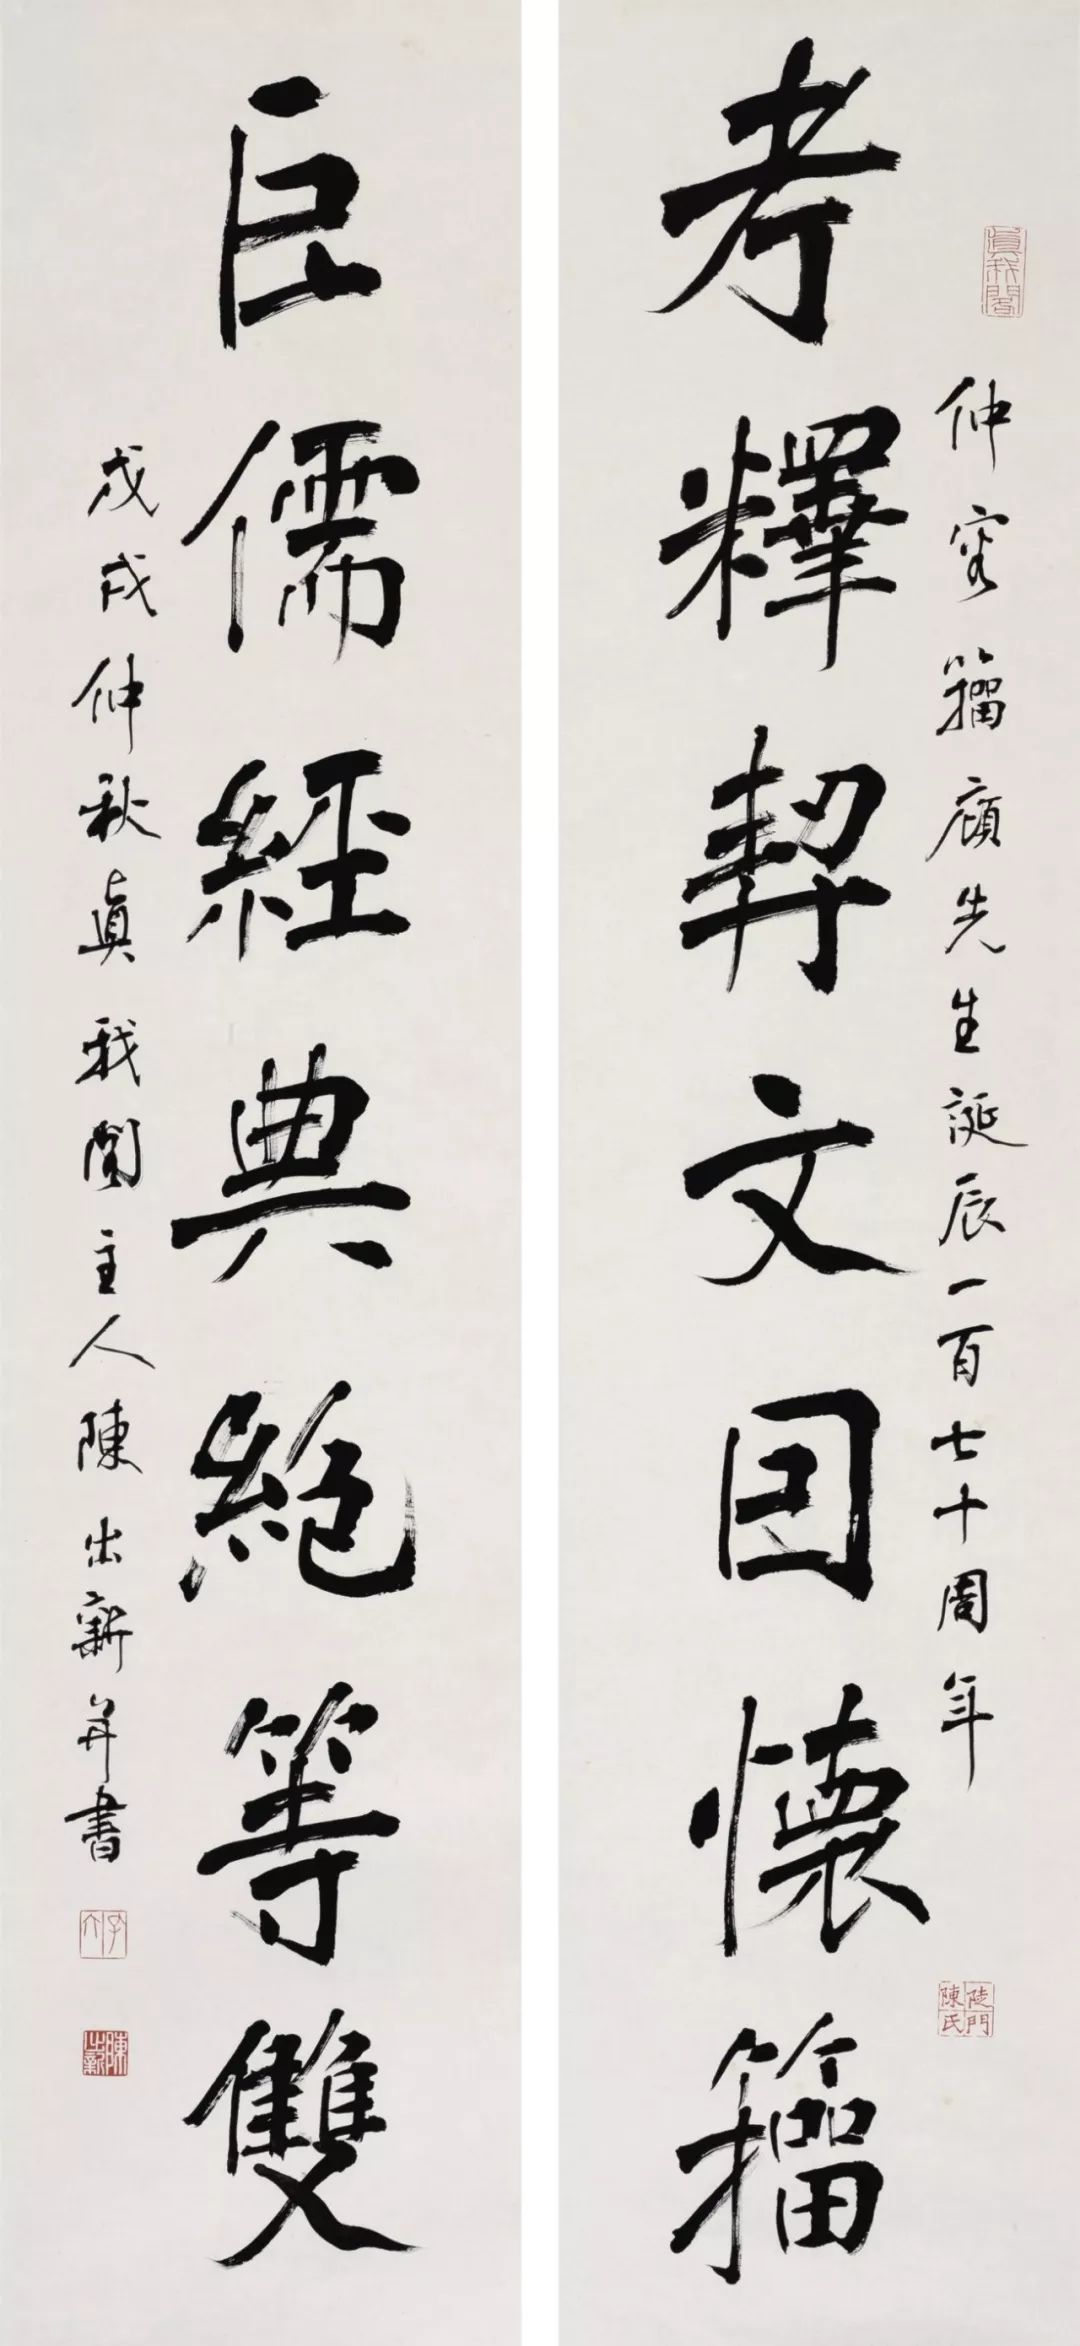 眞我閣
仲容籀廎先生誕辰一百七十周年
陡門陳氏
考釋契文因懷籀
巨儒經典絕等雙
戊戌仲秋眞我閣主人陳出新并書
陳出新